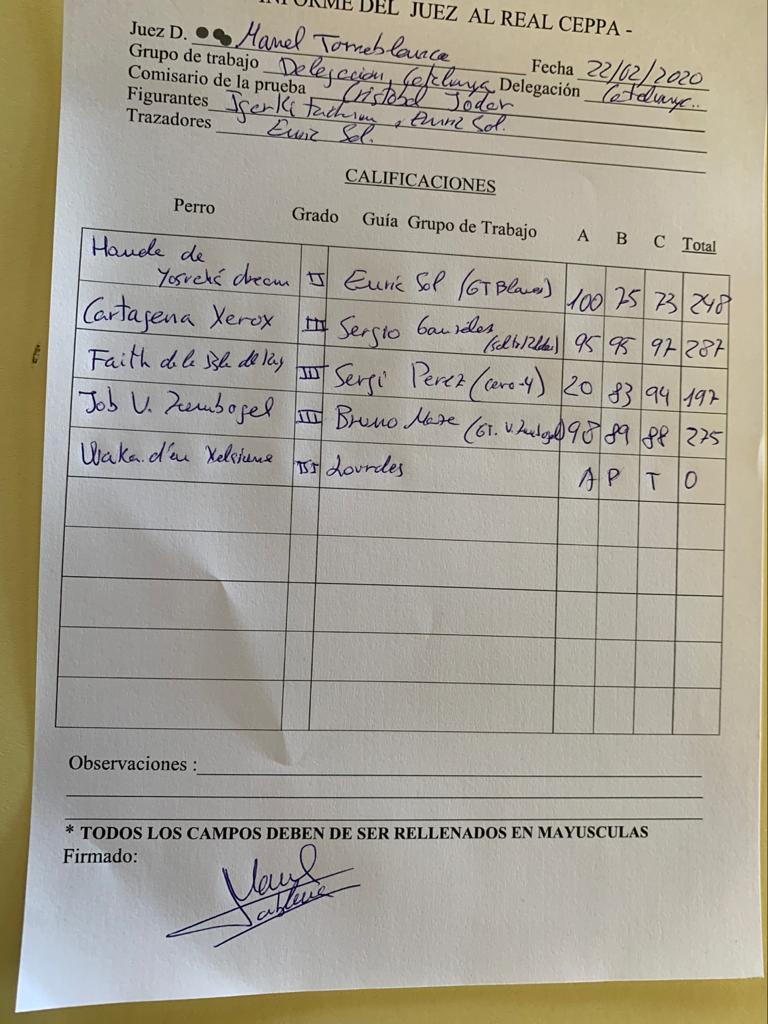 INFORME DEL JUEZ AL REAL CEPPA -
Juez D. Manel Torreblanca
Fecha 22/02/2020
Grupo de trabajo Delegación Catalunya Delegación Catalunya
Comisario de la prueba Cristobal Jodar
Figurantes , Enric Sol.
Trazadores Enric Sol.
CALIFICACIONES
Perro Grado Guía Grupo de Trabajo A B C Total
Haude de
Yosreké dream II Enric Sol (GT Blanes) 100 75 73 248
Cartagena Xerox III Sergio 95 95 97 287
Faith de la Isla de III Sergi Perez (cero-4) 20 83 94 197
Job V. Zumbogel III Bruno (GT. V. Zumbogel) 98 89 88 275
d'en III Lourdes A P T 0
Observaciones :
* TODOS LOS CAMPOS DEBEN DE SER RELLENADOS EN MAYUSCULAS
Firmado: